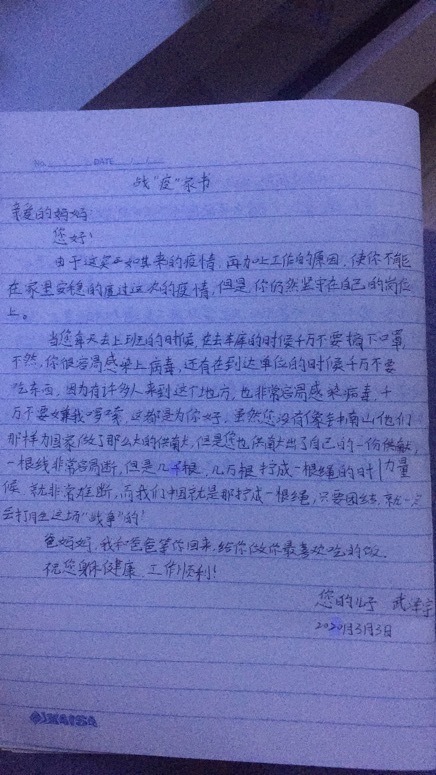 NO. DATE
战"疫"家书
亲爱的妈妈
您好!
由于这突如其来的疫情,再加上工作的原因,使你不能
在家里安稳的度过这次的疫情,但是,你仍然坚守在自己的岗位
上。
当您每天去上班的时候,在去车库的时候千万不要摘下口罩,
不然,你很容易感染上病毒,还有在到达单位的时候千万不要
吃东西,因为有许多人来到这个地方,也非常容易感染病毒,千
万不要嫌我啰嗦,这都是为你好,虽然您没有像钟南山他们
那样为国家做了那么大的供献,但是您也供献出了自己的一份供献
一根线非常容易断,但是几千根,几万根拧成一根绳的时 力量
候,就非常难断,而我们中国就是那拧成一根绳,只要团结,就一定
会打胜这场"战争"的!
妈妈,我和爸爸等你回来,给你做你最喜欢吃的饭
祝您身体健康,工作顺利!
您的儿子 武泽宇
2020月3月3日